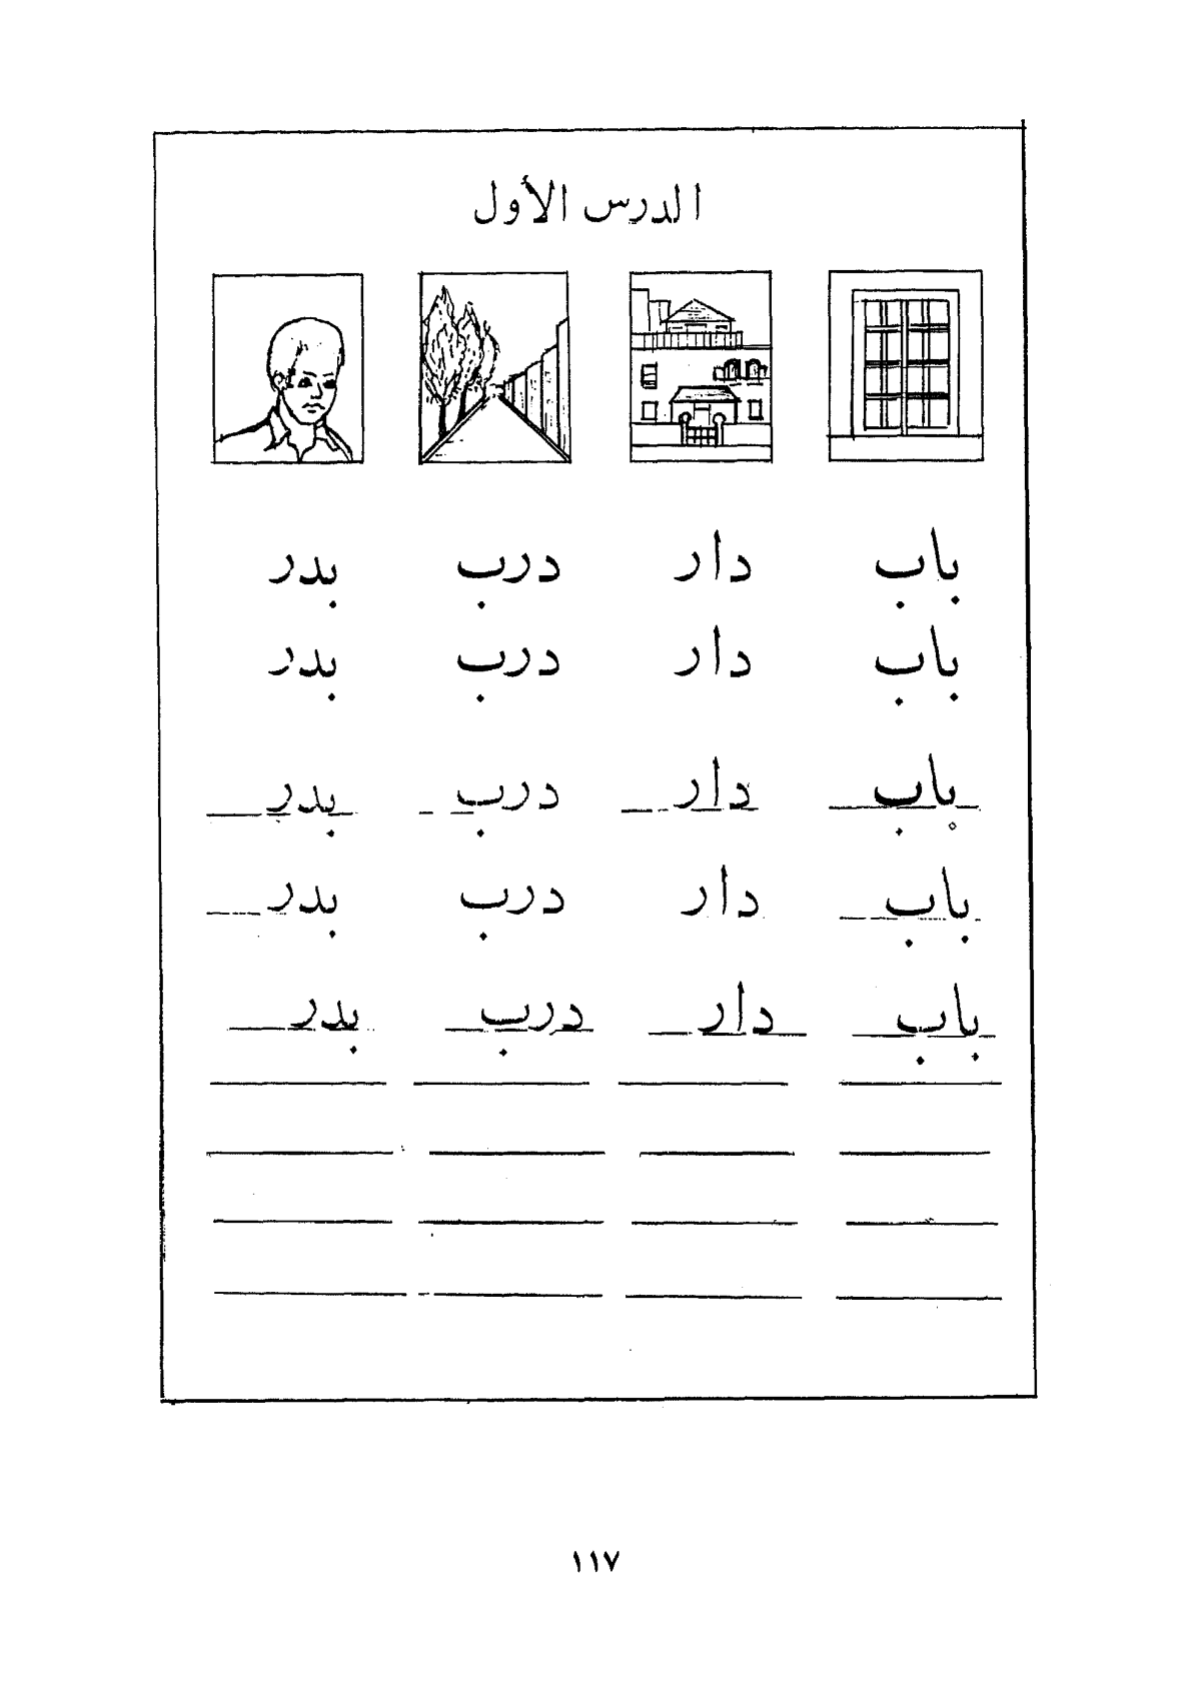 الدرس الأول
باب دار درب بدر
باب دار درب بدر
باب دار درب بدر
باب دار درب بدر
باب دار درب بدر
١١٧